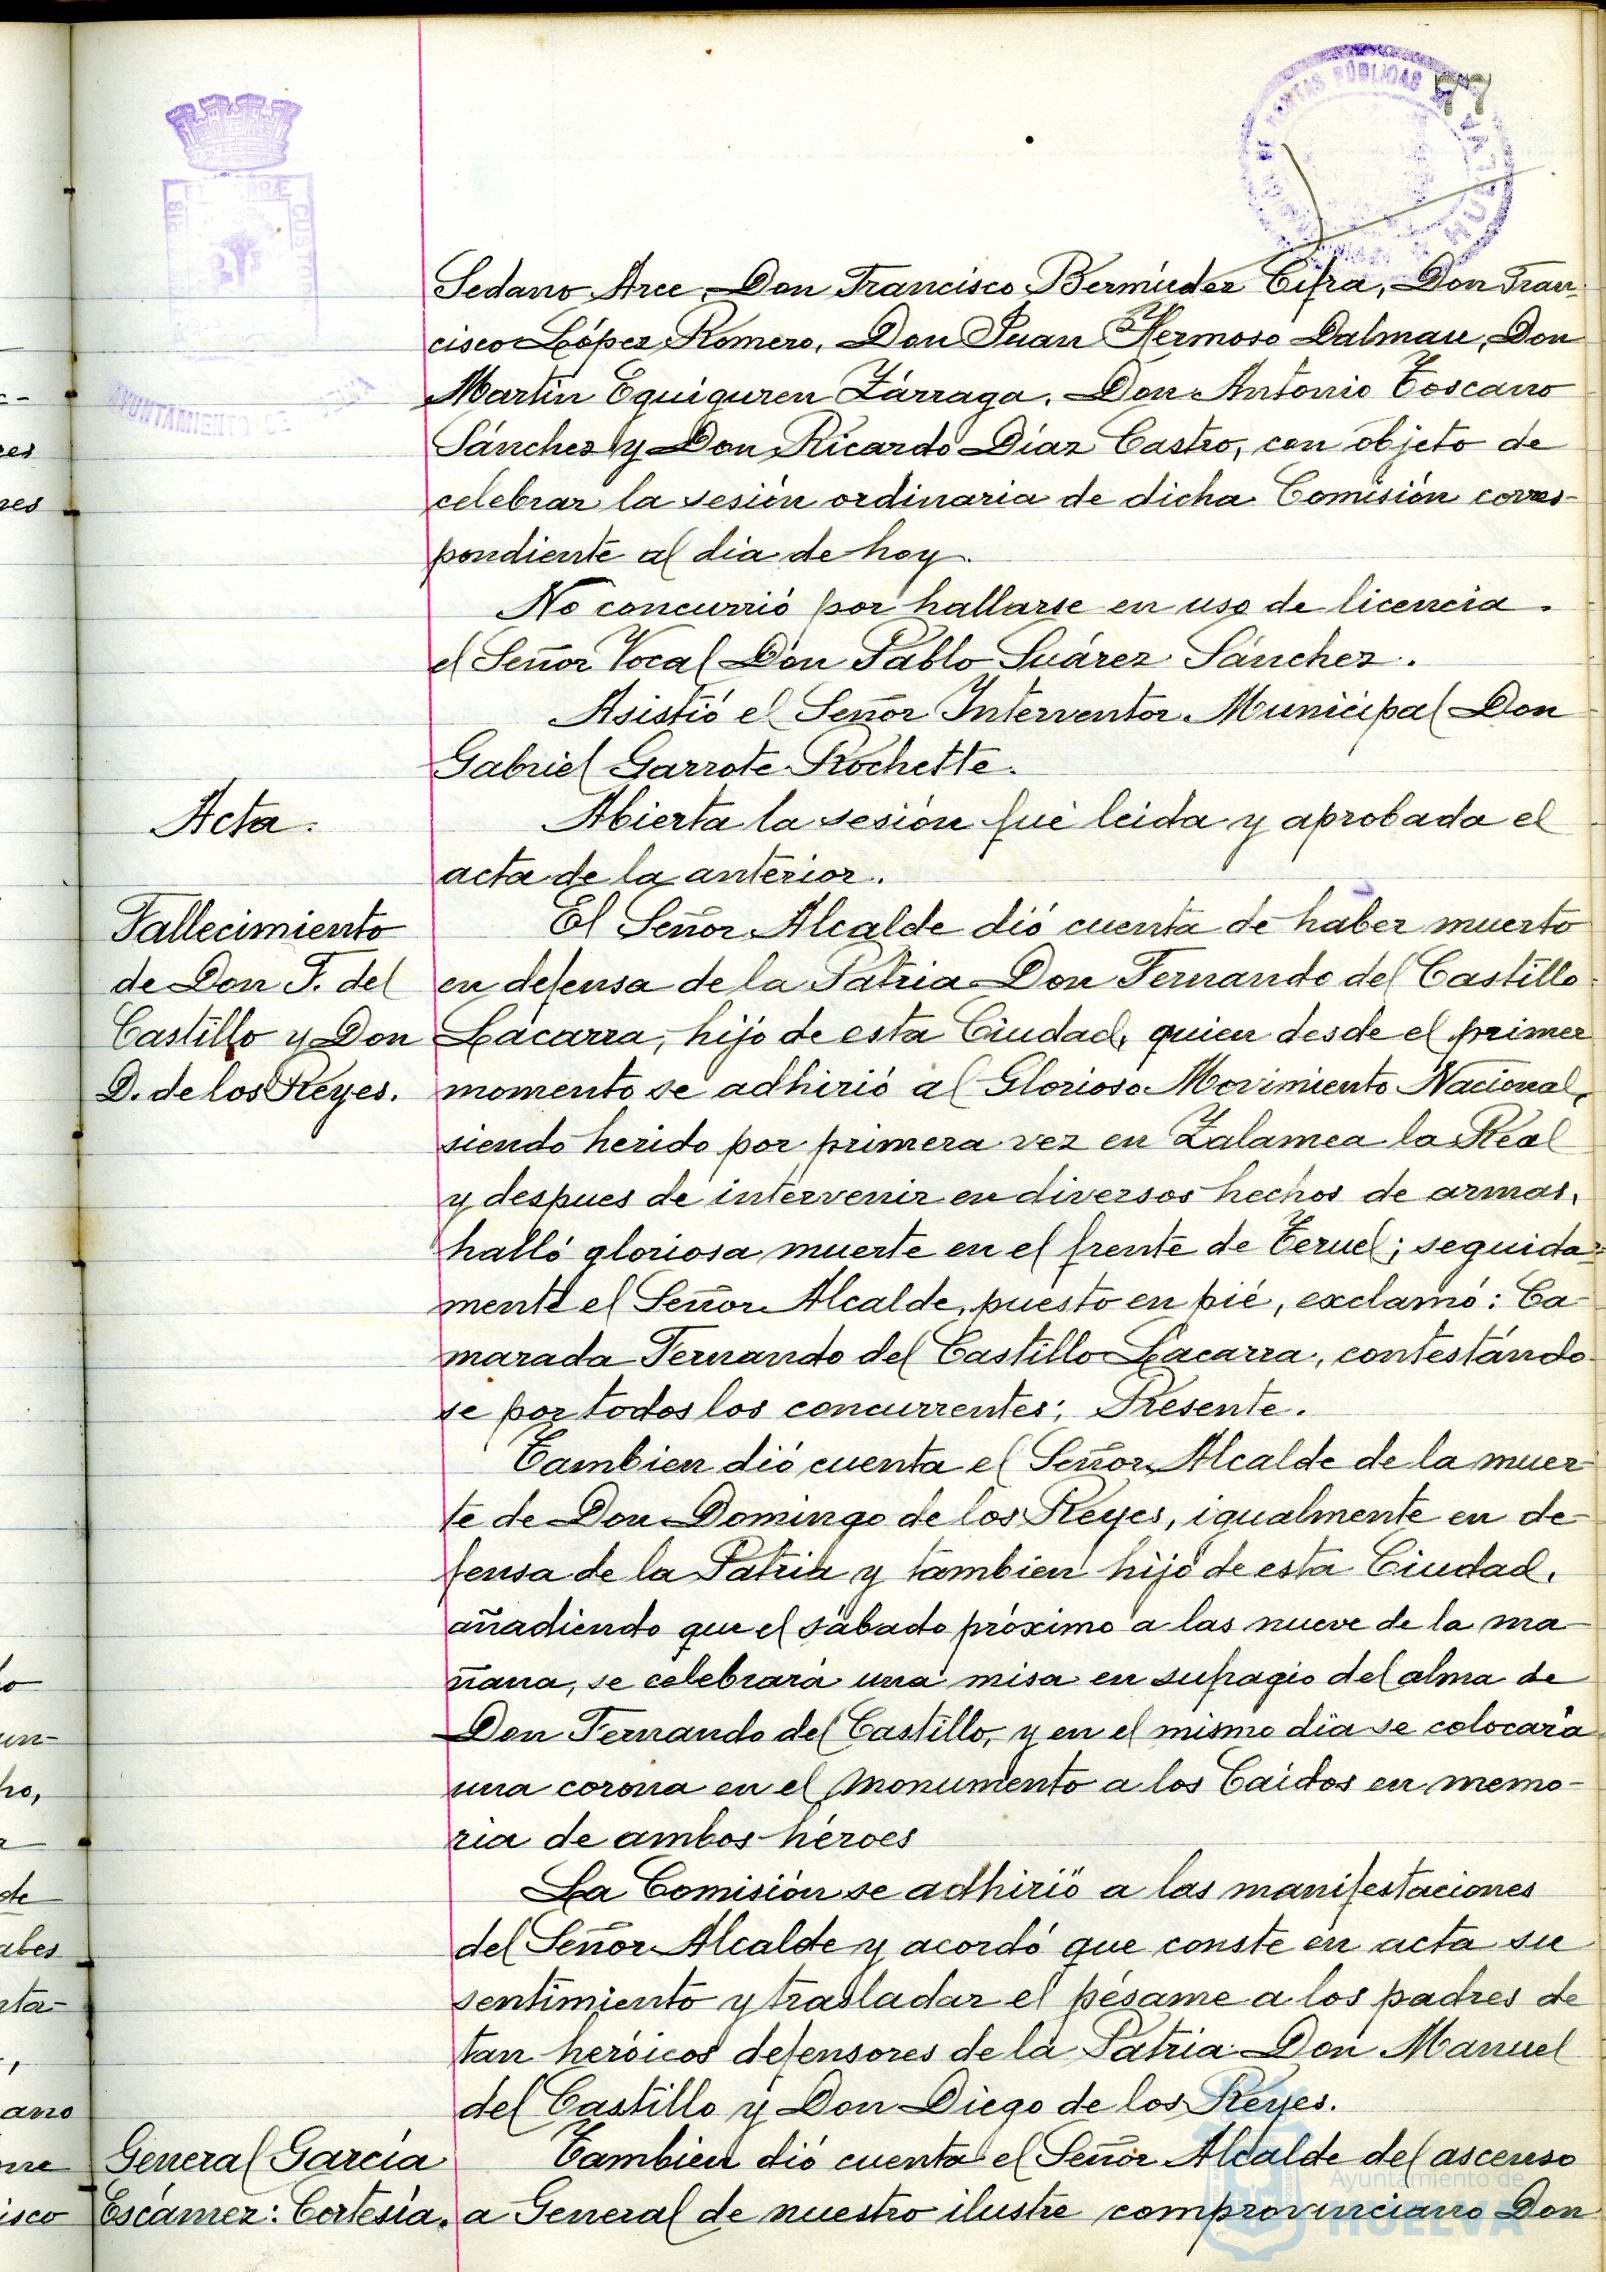 77
AYUNTAMIENTO DE HUELVA
Sedano Arce, Don Francisco Bermúdez Cifra, Don Fran-
cisco López Romero, Don Juan Hermoso Dalmau, Don
Martín Equiguren Zárraga, Don Antonio Toscano
Sánchez y Don Ricardo Díaz Castro, con objeto de
celebrar la sesión ordinaria de dicha Comisión corres-
pondiente al dia de hoy.
No concurrió por hallarse en uso de licencia
el Señor Vocal Don Pablo Suárez Sánchez.
Asistió el Señor Interventor Municipal Don
Gabriel Garrote Rochette.
Acta.
Abierta la sesión fué leida y aprobada el
acta de la anterior.
Fallecimiento
de Don F. del
Castillo y Don
D. de los Reyes.
El Señor Alcalde dió cuenta de haber muerto
en defensa de la Patria Don Fernando del Castillo
Lacarra, hijo de esta Ciudad, quien desde el primer
momento se adhirió al Glorioso Movimiento Nacional,
siendo herido por primera vez en Zalamea la Real
y despues de intervenir en diversos hechos de armas,
halló gloriosa muerte en el frente de Teruel; seguida-
mente el Señor Alcalde, puesto en pié, exclamó: Ca-
marada Fernando del Castillo Lacarra, contestándo-
se por todos los concurrentes; Presente.
Tambien dió cuenta el Señor Alcalde de la muer-
te de Don Domingo de los Reyes, igualmente en de-
fensa de la Patria y tambien hijo de esta Ciudad,
añadiendo que el sábado próximo a las nueve de la ma-
ñana, se celebrará una misa en sufragio del alma de
Don Fernando del Castillo, y en el mismo dia se colocará
una corona en el Monumento a los Caidos en memo-
ria de ambos héroes
La Comisión se adhirió a las manifestaciones
del Señor Alcalde y acordó que conste en acta su
sentimiento y trasladar el pésame a los padres de
tan heróicos defensores de la Patria Don Manuel
del Castillo y Don Diego de los Reyes.
General García
Escámez: Cortesía.
Tambien dió cuenta el Señor Alcalde del ascenso
a General de nuestro ilustre comprovinciano Don
Ayuntamiento de
HUELVA